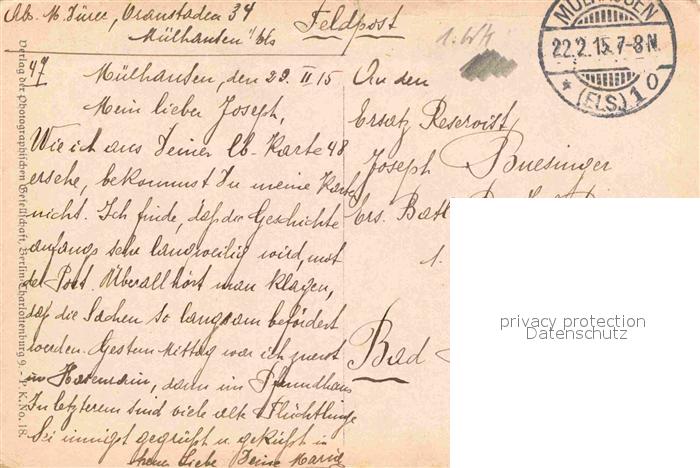 Ab. M. Dürr, Oranstaden 34
Mülhausen i/Els
Feldpost
1. W/4
MÜLHAUSEN
22.2.15. 7-8 N.
* (ELS.) 1 o
47
Mülhausen, den 22. II 15
Mein lieber Joseph,
Wie ich aus Deiner lb. Karte 48
ersehe, bekommst Du meine Karten
nicht. Ich finde, daß die Geschichte
anfangs sehr langweilig wird, mit
der Post. Überall hört man klagen,
daß die Sachen so langsam befördert
werden. Gestern Mittag war ich zuerst
im Hasenrain, dann im Pfrundhaus
In letzterem sind viele alte Flüchtlinge
Sei innigst gegrüßt u. geküßt in
Liebe Deine Marie
An den
Ersatz Reservist
Joseph Buesinger
Ers. Batl.
1.
Bad
Verlag der Photographischen Gesellschaft, Berlin-Charlottenburg 9. - P. K. No. 18.
privacy protection
Datenschutz